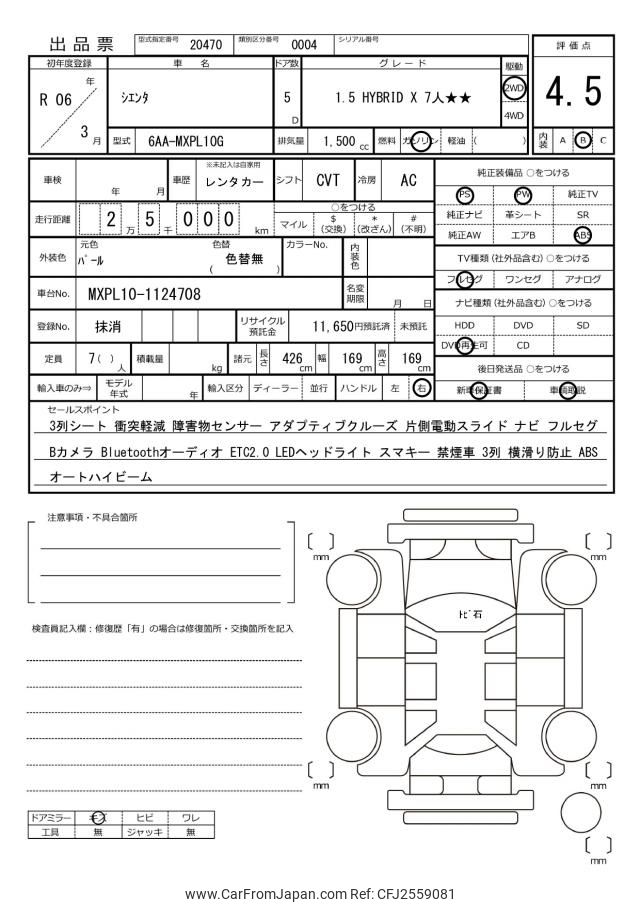 出品票 型式指定番号 20470 類別区分番号 0004 シリアル番号
評価点
4.5
内装 A B C
初年度登録 車名 ドア数 グレード 駆動
R 06 年 3 月
シエンタ
5 D
1.5 HYBRID X 7人★★
2WD
4WD
型式 6AA-MXPL10G 排気量 1,500 cc 燃料 ガソリン 軽油 ( )
車検 年 月 車歴 ※未記入は自家用 レンタカー シフト CVT 冷房 AC
走行距離 2 万 5 千 0 0 0 km
○をつける
マイル $(交換) *(改ざん) #(不明)
外装色 元色 パール 色替 ( 色替無 ) カラーNo. 内装色
車台No. MXPL10-1124708 名変期限 月 日
登録No. 抹消 リサイクル預託金 11,650円預託済 未預託
定員 7( )人 積載量 kg 諸元 長さ 426 cm 幅 169 cm 高さ 169 cm
輸入車のみ⇒ モデル年式 年 輸入区分 ディーラー 並行 ハンドル 左 右
純正装備品 ○をつける
PS PW 純正TV
純正ナビ 革シート SR
純正AW エアB ABS
TV種類(社外品含む) ○をつける
フルセグ ワンセグ アナログ
ナビ種類(社外品含む) ○をつける
HDD DVD SD
DVD再生可 CD
後日発送品 ○をつける
新車保証書 車輌取説
セールスポイント
3列シート 衝突軽減 障害物センサー アダプティブクルーズ 片側電動スライド ナビ フルセグ
Bカメラ Bluetoothオーディオ ETC2.0 LEDヘッドライト スマキー 禁煙車 3列 横滑り防止 ABS
オートハイビーム
注意事項・不具合箇所
検査員記入欄：修復歴「有」の場合は修復箇所・交換箇所を記入
ドアミラー キズ ヒビ ワレ
工具 無 ジャッキ 無
mm
mm
トビ石
mm
mm
mm
www.CarFromJapan.com Ref: CFJ2559081